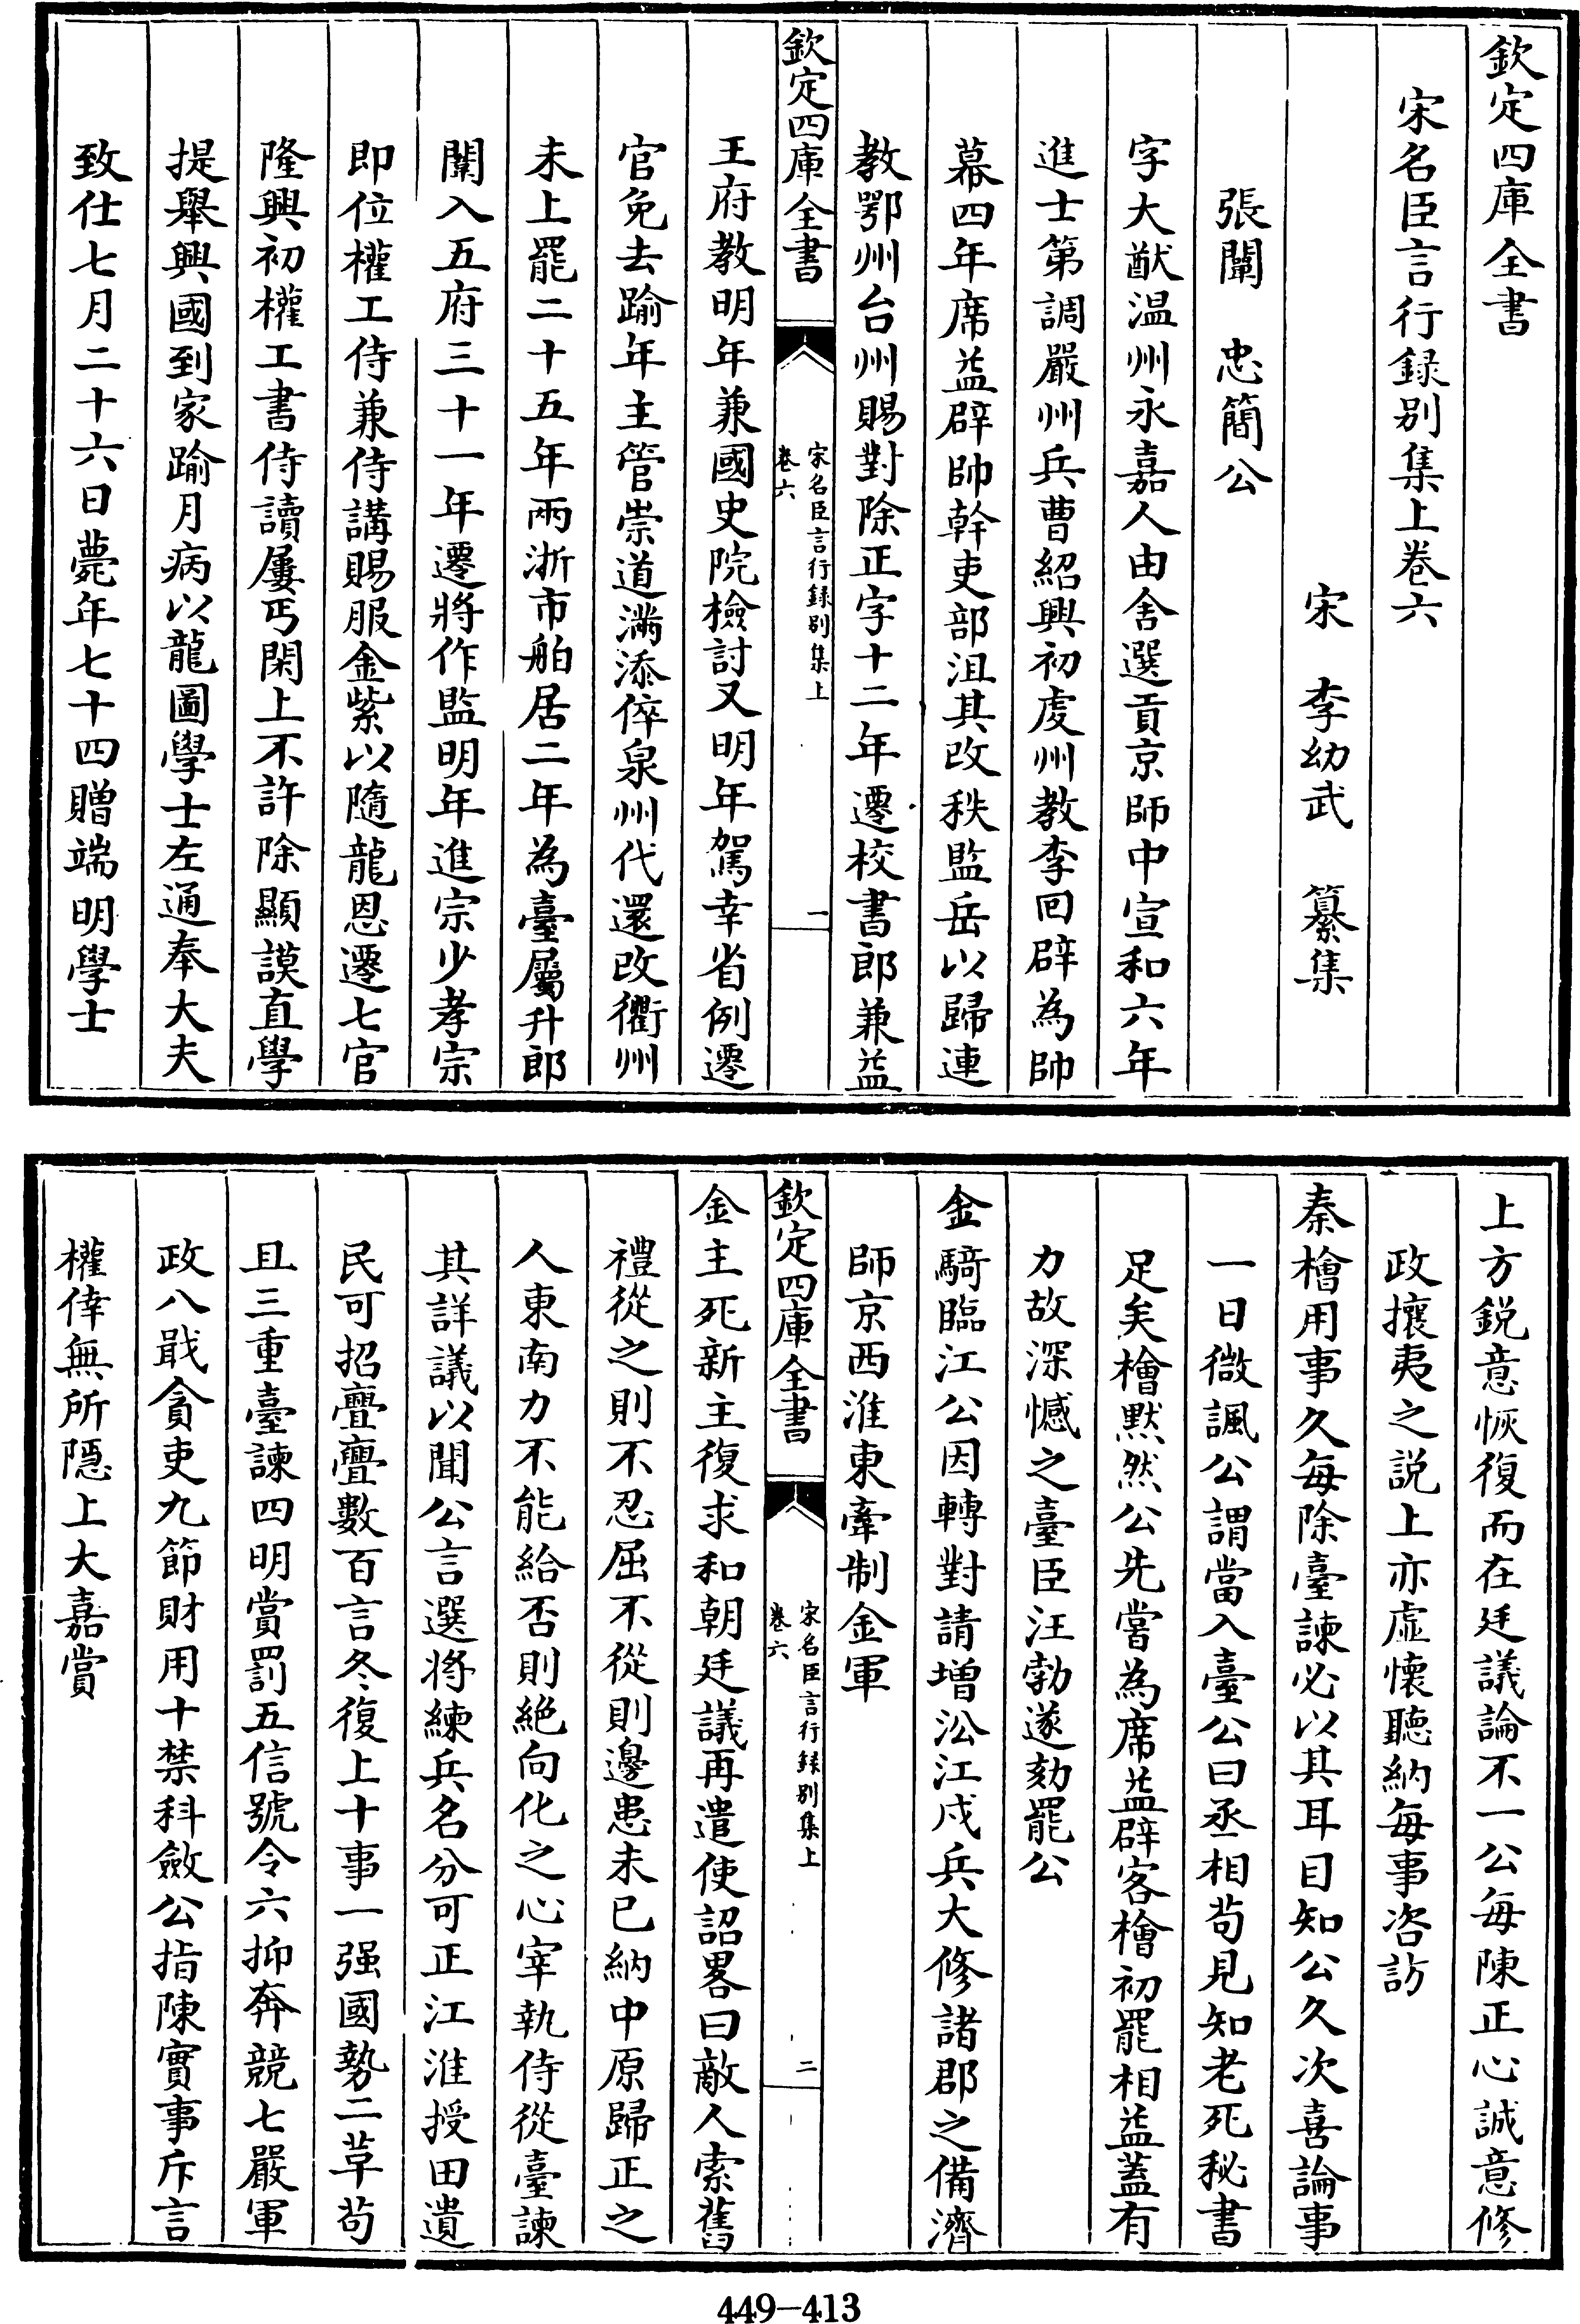 欽定四庫全書
宋名臣言行録别集上卷六
宋 李幼武 纂集
張闡 忠簡公
字大猷温州永嘉人由舍選貢京師中宣和六年
進士第調嚴州兵曹紹興初處州教李回辟為帥
幕四年席益辟帥幹吏部沮其改秩監岳以歸連
教鄂州台州賜對除正字十二年遷校書郎兼益
欽定四庫全書
宋名臣言行録别集上
卷六
一
王府教明年兼國史院檢討又明年駕幸省例遷
官免去踰年主管崇道滿添倅泉州代還改衢州
未上罷二十五年兩浙市舶居二年為臺屬升郎
闡入五府三十一年遷將作監明年進宗少孝宗
即位權工侍兼侍講賜服金紫以隨龍恩遷七官
隆興初權工書侍讀屢丐閑上不許除顯謨直學
提舉興國到家踰月病以龍圖學士左通奉大夫
致仕七月二十六日薨年七十四贈端明學士
上方鋭意恢復而在廷議論不一公每陳正心誠意修
政攘夷之説上亦虛懷聽納每事咨訪
秦檜用事久每除臺諫必以其耳目知公久次喜論事
一日微諷公謂當入臺公曰丞相茍見知老死秘書
足矣檜默然公先嘗為席益辟客檜初罷相益蓋有
力故深憾之臺臣汪勃遂劾罷公
金騎臨江公因轉對請增沿江戍兵大修諸郡之備濟
師京西淮東牽制金軍
欽定四庫全書
宋名臣言行録别集上
卷六
二
金主死新主復求和朝廷議再遣使詔畧曰敵人索舊
禮從之則不忍屈不從則邊患未已納中原歸正之
人東南力不能給否則絶向化之心宰執侍從臺諫
其詳議以聞公言選將練兵名分可正江淮授田遺
民可招亹亹數百言冬復上十事一强國勢二革茍
且三重臺諫四明賞罰五信號令六抑奔競七嚴軍
政八戢貪吏九節財用十禁科斂公指陳實事斥言
權倖無所隱上大嘉賞
449-413